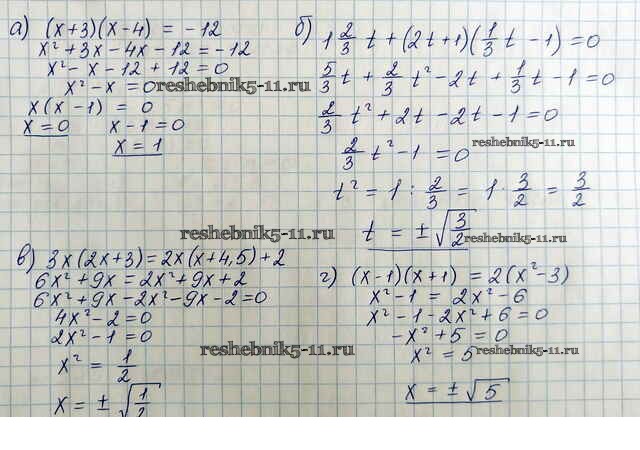 а) (x+3)(x-4) = -12
x² + 3x - 4x - 12 = -12
x² - x - 12 + 12 = 0
x² - x = 0
reshebnik5-11.ru
x(x-1) = 0
x = 0 x - 1 = 0
x = 1
б) 1 2/3 t + (2t+1)(1/3 t - 1) = 0
5/3 t + 2/3 t² - 2t + 1/3 t - 1 = 0
2/3 t² + 2t - 2t - 1 = 0
reshebnik5-11.ru
2/3 t² - 1 = 0
t² = 1 : 2/3 = 1 · 3/2 = 3/2
t = ± √3/2
reshebnik5-11.ru
reshebnik5-11.ru
в) 3x(2x+3) = 2x(x+4,5) + 2
6x² + 9x = 2x² + 9x + 2
6x² + 9x - 2x² - 9x - 2 = 0
4x² - 2 = 0
2x² - 1 = 0
x² = 1/2
x = ± √1/2
reshebnik5-11.ru
г) (x-1)(x+1) = 2(x²-3)
x² - 1 = 2x² - 6
x² - 1 - 2x² + 6 = 0
-x² + 5 = 0
x² = 5
reshebnik5-11.ru
x = ± √5